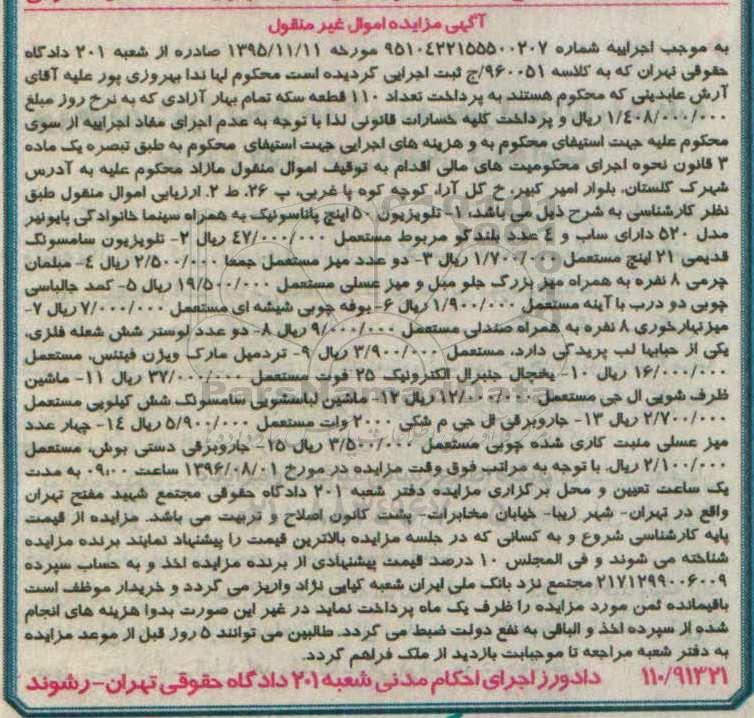 آگهی مزایده اموال غیر منقول
به موجب اجراییه شماره ۹۵۱۰۴۲۲۱۵۵۵۰۰۲۰۷ مورخه ۱۳۹۵/۱۱/۱۱ صادره از شعبه ۲۰۱ دادگاه
حقوقی تهران که به کلاسه ۹۶۰۰۵۱/ج ثبت اجرایی گردیده است محکوم لها ندا بهروزی پور علیه آقای
آرش عابدینی که محکوم هستند به پرداخت تعداد ۱۱۰ قطعه سکه تمام بهار آزادی که به نرخ روز مبلغ
۱/٤۰۸/۰۰۰/۰۰۰ ریال و پرداخت کلیه خسارات قانونی لذا با توجه به عدم اجرای مفاد اجراییه از سوی
محکوم علیه جهت استیفای محکوم به و هزینه های اجرایی جهت استیفای محکوم به طبق تبصره یک ماده
۳ قانون نحوه اجرای محکومیت های مالی اقدام به توقیف اموال منقول مازاد محکوم علیه به آدرس
شهرک گلستان، بلوار امیر کبیر، خ گل آرا، کوچه کوه پا غربی، پ ۲۶، ط ۲. ارزیابی اموال منقول طبق
نظر کارشناسی به شرح ذیل می باشد، ۱- تلویزیون ۵۰ اینچ پاناسونیک به همراه سینما خانوادگی پایونیر
مدل ۵۲۰ دارای ساب و ٤ عدد بلندگو مربوط مستعمل ٤۷/۰۰۰/۰۰۰ ریال ۲- تلویزیون سامسونگ
قدیمی ۲۱ اینچ مستعمل ۱/۷۰۰/۰۰۰ ریال ۳- دو عدد میز مستعمل جمعا ۲/۵۰۰/۰۰۰ ریال ٤- مبلمان
چرمی ۸ نفره به همراه میز بزرگ جلو مبل و میز عسلی مستعمل ۱۹/۵۰۰/۰۰۰ ریال ۵- کمد جالباسی
چوبی دو درب با آینه مستعمل ۱/۹۰۰/۰۰۰ ریال ۶- بوفه چوبی شیشه ای مستعمل ۷/۰۰۰/۰۰۰ ریال ۷-
میزنهارخوری ۸ نفره به همراه صندلی مستعمل ۹/۰۰۰/۰۰۰ ریال ۸- دو عدد لوستر شش شعله فلزی،
یکی از حبابها لب پریدگی دارد، مستعمل ۳/۹۰۰/۰۰۰ ریال ۹- تردمیل مارک ویژن فیتنس، مستعمل
۱۶/۰۰۰/۰۰۰ ریال ۱۰- یخچال جنرال الکترونیک ۲۵ فوت مستعمل ۳۷/۰۰۰/۰۰۰ ریال ۱۱- ماشین
ظرف شویی ال جی مستعمل ۱۲/۰۰۰/۰۰۰ ریال ۱۲- ماشین لباسشویی سامسونگ شش کیلویی مستعمل
۲/۷۰۰/۰۰۰ ریال ۱۳- جاروبرقی ال جی م شکی ۲۰۰۰ وات مستعمل ۵/۹۰۰/۰۰۰ ریال ۱٤- چهار عدد
میز عسلی منبت کاری شده چوبی مستعمل ۳/۵۰۰/۰۰۰ ریال ۱۵- جاروبرقی دستی بوش، مستعمل
۲/۱۰۰/۰۰۰ ریال. با توجه به مراتب فوق وقت مزایده در مورخ ۱۳۹۶/۰۸/۰۱ ساعت ۰۹:۰۰ به مدت
یک ساعت تعیین و محل برگزاری مزایده دفتر شعبه ۲۰۱ دادگاه حقوقی مجتمع شهید مفتح تهران
واقع در تهران- شهر زیبا- خیابان مخابرات- پشت کانون اصلاح و تربیت می باشد. مزایده از قیمت
پایه کارشناسی شروع و به کسانی که در جلسه مزایده بالاترین قیمت را پیشنهاد نمایند برنده مزایده
شناخته می شوند و فی المجلس ۱۰ درصد قیمت پیشنهادی از برنده مزایده اخذ و به حساب سپرده
۲۱۷۱۲۹۹۰۰۶۰۰۹ مجتمع نزد بانک ملی ایران شعبه کیایی نژاد واریز می گردد و خریدار موظف است
باقیمانده ثمن مورد مزایده را ظرف یک ماه پرداخت نماید در غیر این صورت بدوا هزینه های انجام
شده از سپرده اخذ و الباقی به نفع دولت ضبط می گردد. طالبین می توانند ۵ روز قبل از موعد مزایده
به دفتر شعبه مراجعه تا موجبابت بازدید از ملک فراهم گردد.
۱۱۰/۹۱۳۲۱ دادورز اجرای احکام مدنی شعبه ۲۰۱ دادگاه حقوقی تهران- رشوند